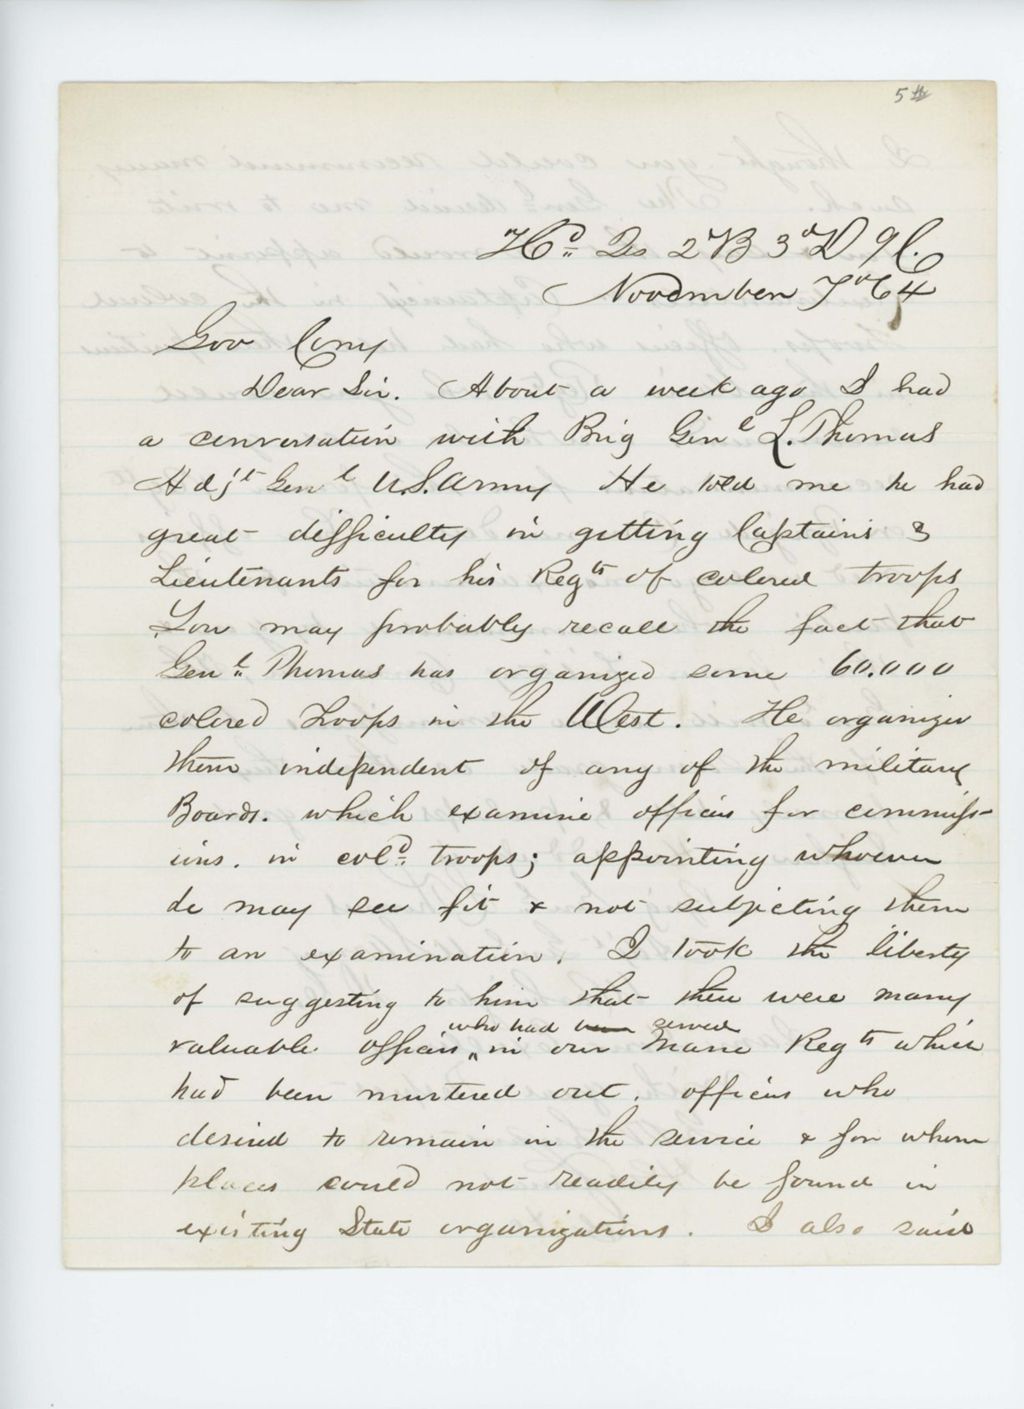 5th
Hd Qs 2d B 3d D 9 C.
November 7th 64
Gov Cony
Dear Sir. About a week ago I had
a conversation with Brig Genl L. Thomas
Adjt Genl U.S. Army He told me he had
great difficulty in getting Captains &
Lieutenants for his Regts of colored troops
You may probably recall the fact that
Genl Thomas has organized some 60.000
colored troops in the West. He organizes
them independent of any of the military
Boards. which examine officers for commiss-
ions. in cold troops; appointing whoever
he may see fit & not subjecting them
to an examination. I took the liberty
of suggesting to him that there were many
who had been served
valuable officers in our Maine Regts which
had been mustered out. officers who
desired to remain in the service & for whom
places could not readily be found in
existing State organizations. I also said